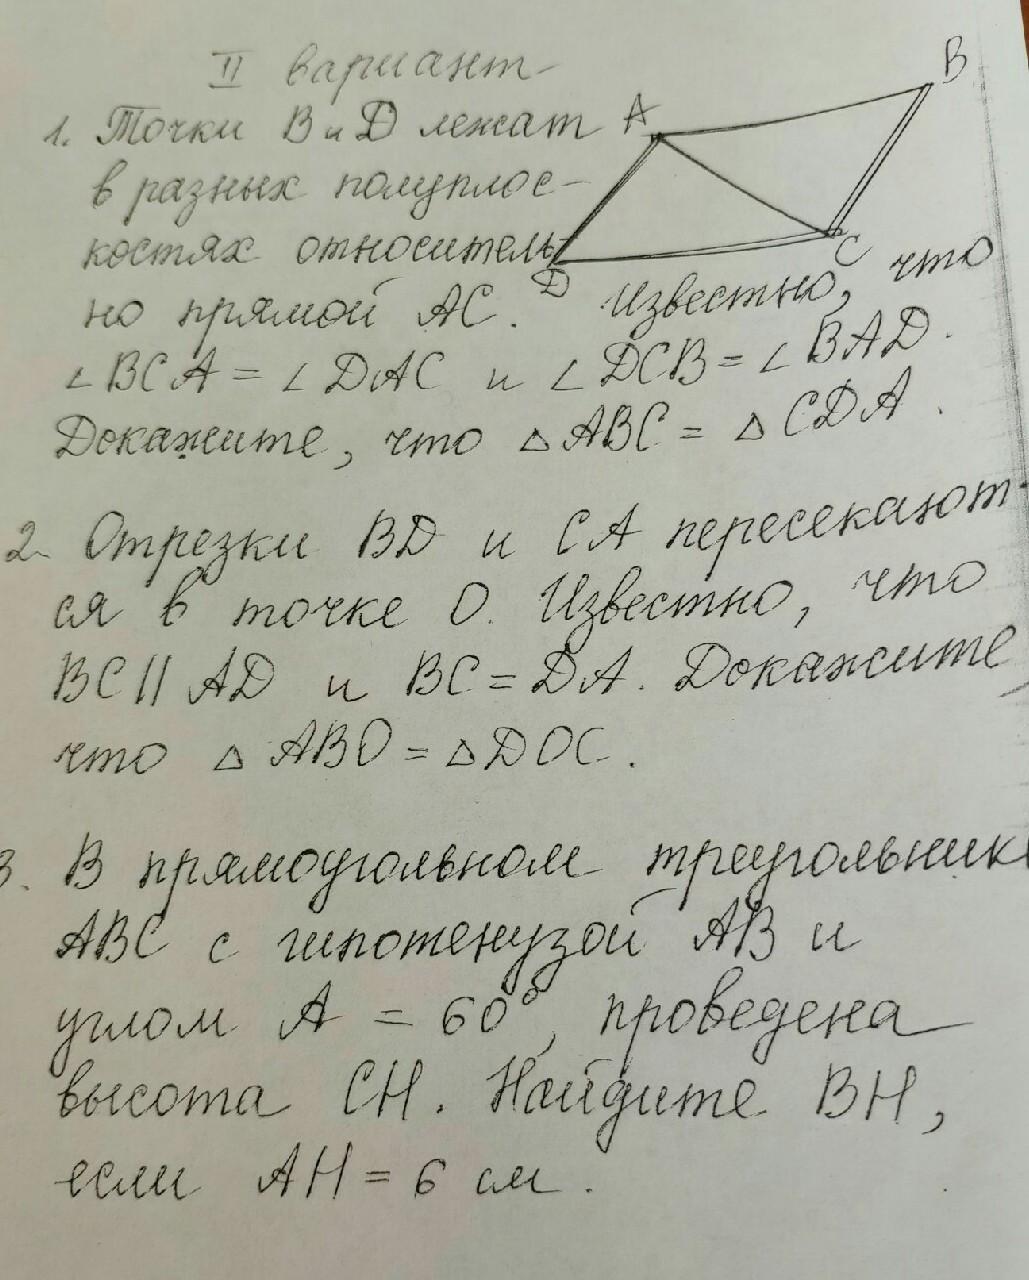 II вариант
1. Точки В и D лежат
в разных полуплос-
костях относитель-
но прямой АС. Известно, что
∠BCA = ∠DAC и ∠DCB = ∠BAD.
Докажите, что △ABC = △CDA.
A
B
C
D
2. Отрезки BD и CA пересекают-
ся в точке O. Известно, что
BC || AD и BC = DA. Докажите,
что △ABO = △DOC.
3. В прямоугольном треугольник
ABC с гипотенузой AB и
углом A = 60°, проведена
высота CH. Найдите BH,
если AH = 6 см.